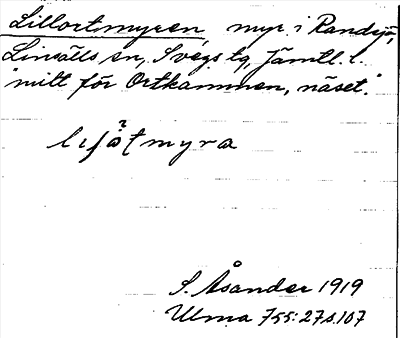 Lillortmyren, myr i Randsjö,
Linsälls sn, Svegs tg, Jämtl. l.
"mitt för Ortkammen, näset."
S. Åsander 1919
Ulma 755:27 s. 107